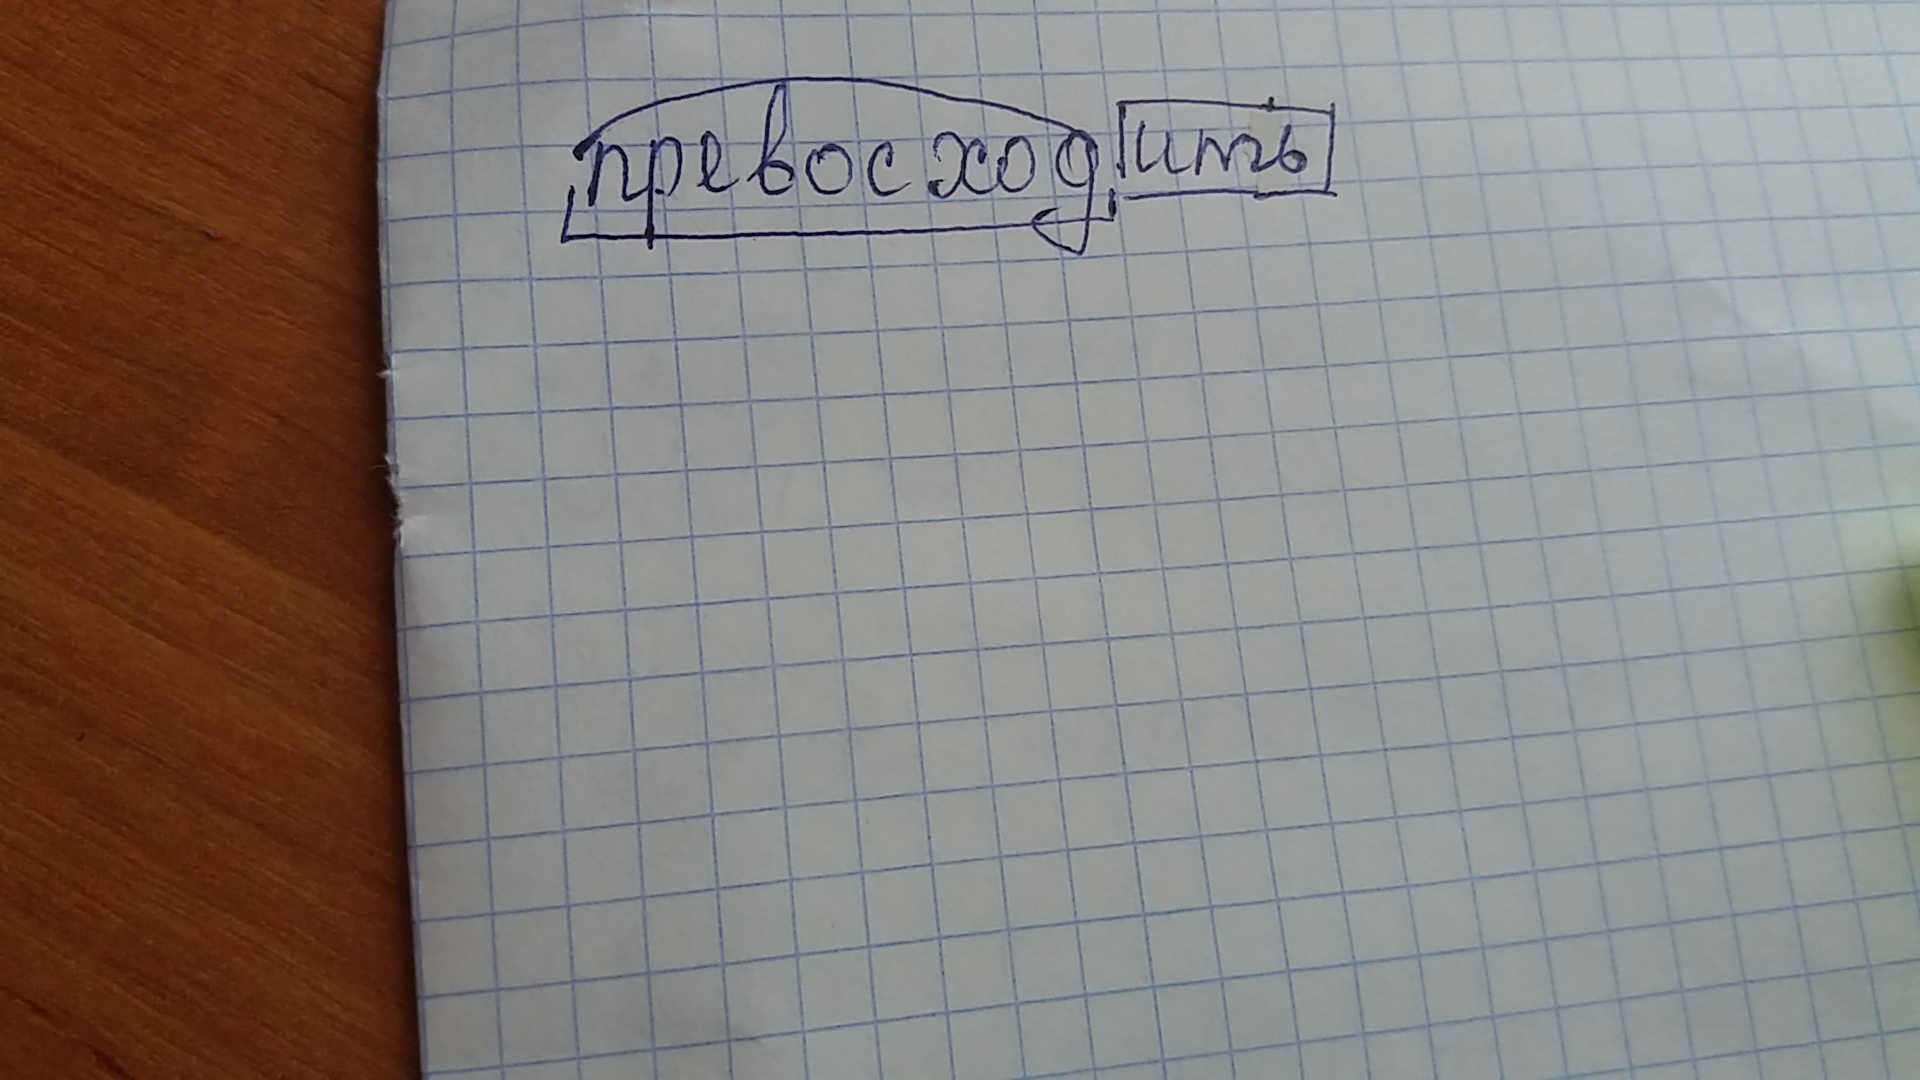 превосходить